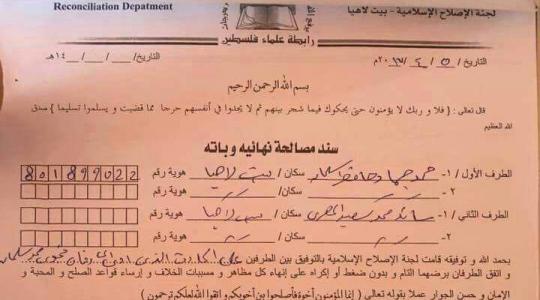 Reconciliation Depatment
لجنة الإصلاح الإسلامية - بيت لاهيا
رابطة علماء فلسطين
التاريخ / ٥ / ٤ / ٢٠١٣م
التاريخ/ __/ __/ __ ١٤هـ
بسم الله الرحمن الرحيم
قال تعالى : { فلا و ربك لا يؤمنون حتى يحكموك فيما شجر بينهم ثم لا يجدوا في أنفسهم حرجا مما قضيت و يسلموا تسليما } صدق
الله العظيم
سند مصالحة نهائيه و باته
الطرف الأول / ١- سكان / بيت لاهيا هوية رقم 801899022
٢- سكان / هوية رقم
الطرف الثاني / ١- محمد سعيد المصري سكان / بيت لاهيا هوية رقم
٢- سكان / هوية رقم
بحمد الله و توفيقه قامت لجنة الإصلاح الإسلامية بالتوفيق بين الطرفين على
و اتفق الطرفان برضهما التام و بدون ضغط أو إكراه على إنهاء كل مظاهر و مسببات الخلاف و إرساء قواعد الصلح و المحبة و
الإمان و حسن الجوار عملا بقوله تعالى ( إنما المؤمنون أخوة فأصلحوا بين أخويكم و اتقوا الله لعلكم ترحمون )